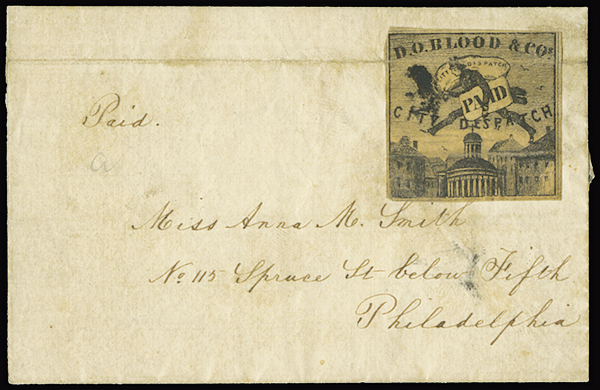 D.O. BLOOD & Co's
CITY DISPATCH
PAID
CITY DESPATCH
Paid.
a
Miss Anna M. Smith
No 115 Spruce St below Fifth
Philadelphia